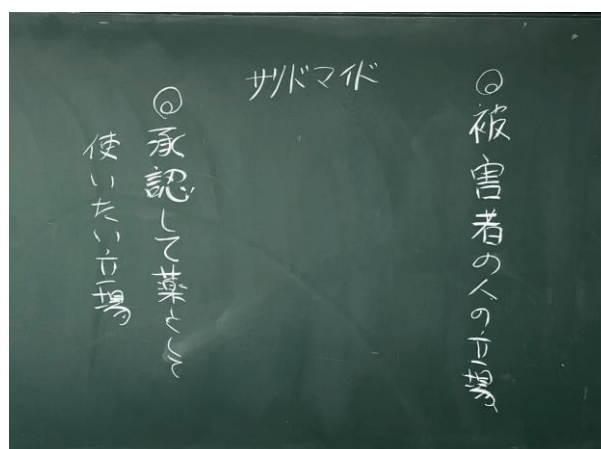 サリドマイド
◎被害者の人の立場
◎承認して薬として
使いたい立場